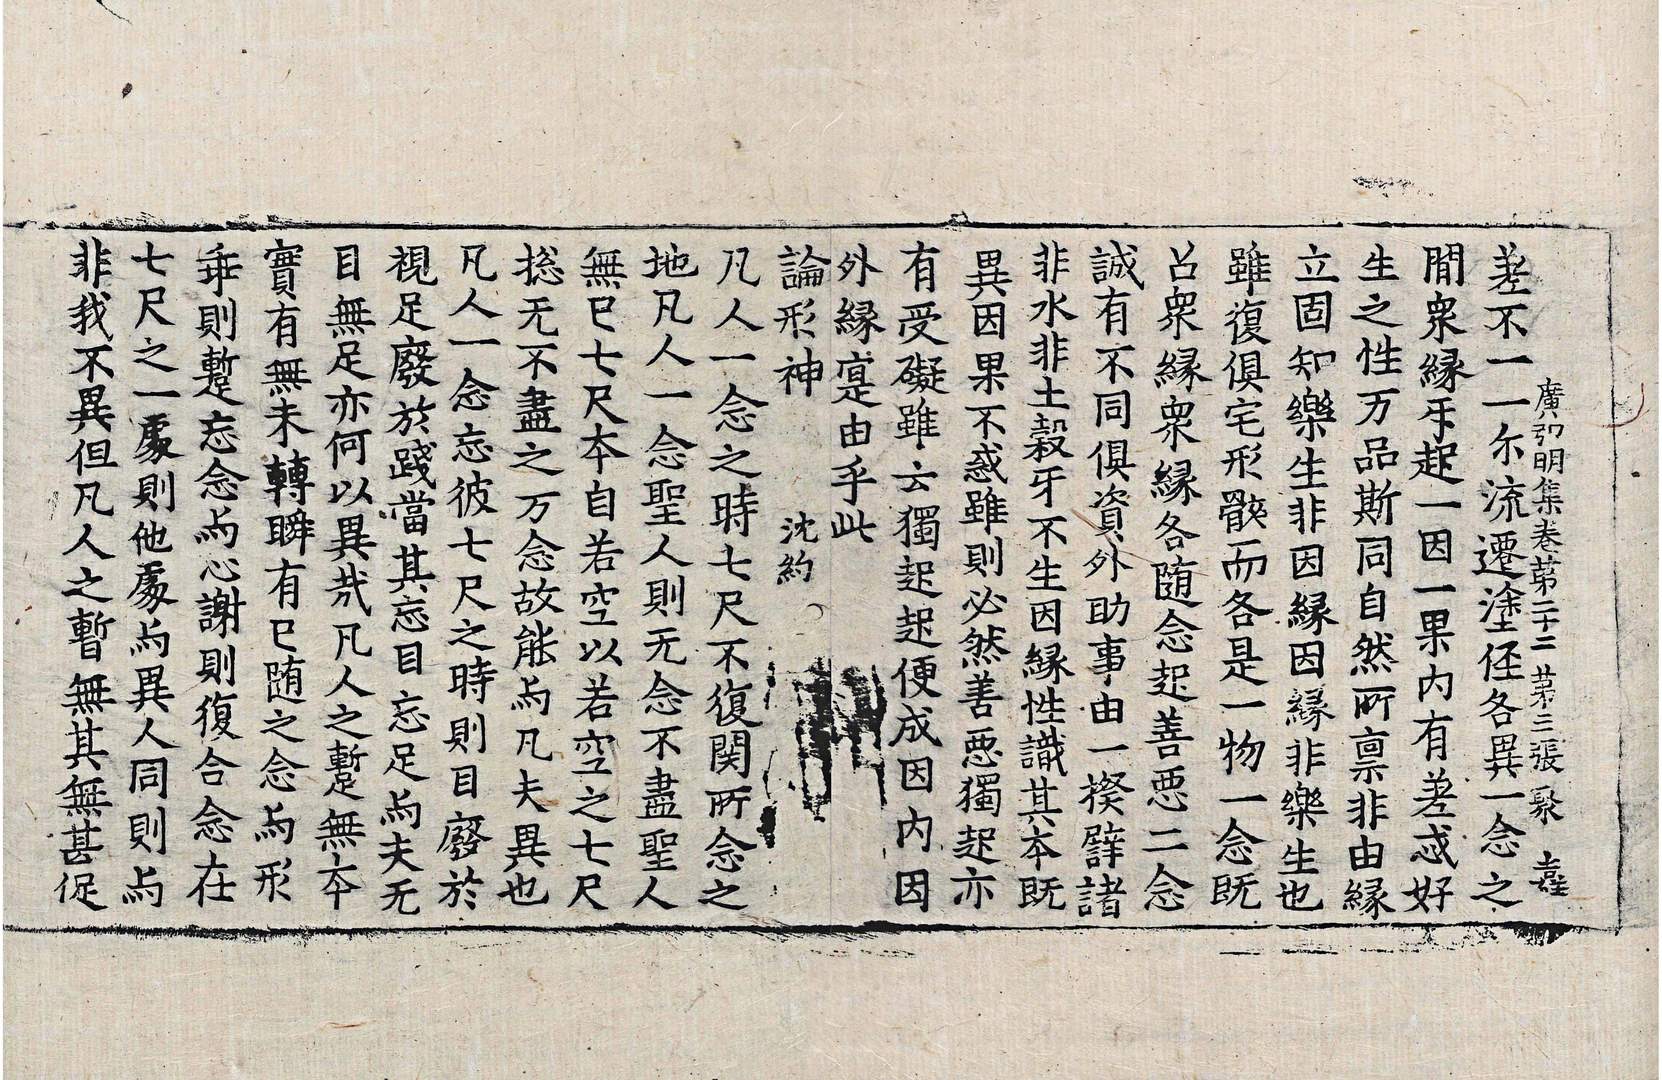 廣弘明集卷苐二十二 苐三張 聚
差不一一尓流遷塗侄各異一念之
間衆縁㸦起一因一果内有差忒好
生之性万品斯同自然所禀非由縁
立固知樂生非因縁因縁非樂生也
雖復俱宅形骸而各是一物一念既
召衆縁衆縁各随念起善惡二念
誠有不同俱資外助事由一揆譬諸
非水非土糓牙不生因縁性識其本既
異因果不惑雖則必然善惡獨起亦
有受礙雖云獨起起便成因内因
外縁寔由乎此
論形神 沈約
凡人一念之時七尺不復関所念之
地凡人一念聖人則无念不盡聖人
無已七尺本自若空以若空之七尺
捴无不盡之万念故能与凡夫異也
凡人一念忘彼七尺之時則目廢於
視足廢於踐當其忘目忘足与夫无
目無足亦何以異㢤凡人之蹔無本
實有無未轉瞬有已随之念与形
乖則蹔忘念与心謝則復合念在
七尺之一處則他處与異人同則与
非我不異但凡人之暫無其無甚促